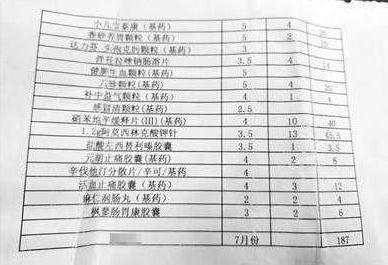 小儿宝泰康（基药） 5 4
香砂养胃颗粒（基药） 5 2
达力芬 头孢克肟颗粒（基药） 3
泮托拉唑钠肠溶片 3.5 4 14
健脾生血颗粒(基药) 5
六味颗粒（基药） 5 4
补中益气颗粒（基药） 1 1
感冒清颗粒(基药) 2.5
硝苯地平缓释片(III)(基药) 4 10 40
1.2g阿莫西林克酸钾针 3.5 13 45.5
盐酸左西替利嗪胶囊 3.5 1 3.5
元胡止痛胶囊（基药） 4 2 8
辛伐他汀分散片/辛可/基药 4
活血止痛胶囊（基药） 4 3 12
麻仁润肠丸（基药） 2 2 4
枫蓼肠胃康胶囊 3 2 6
7月份 187